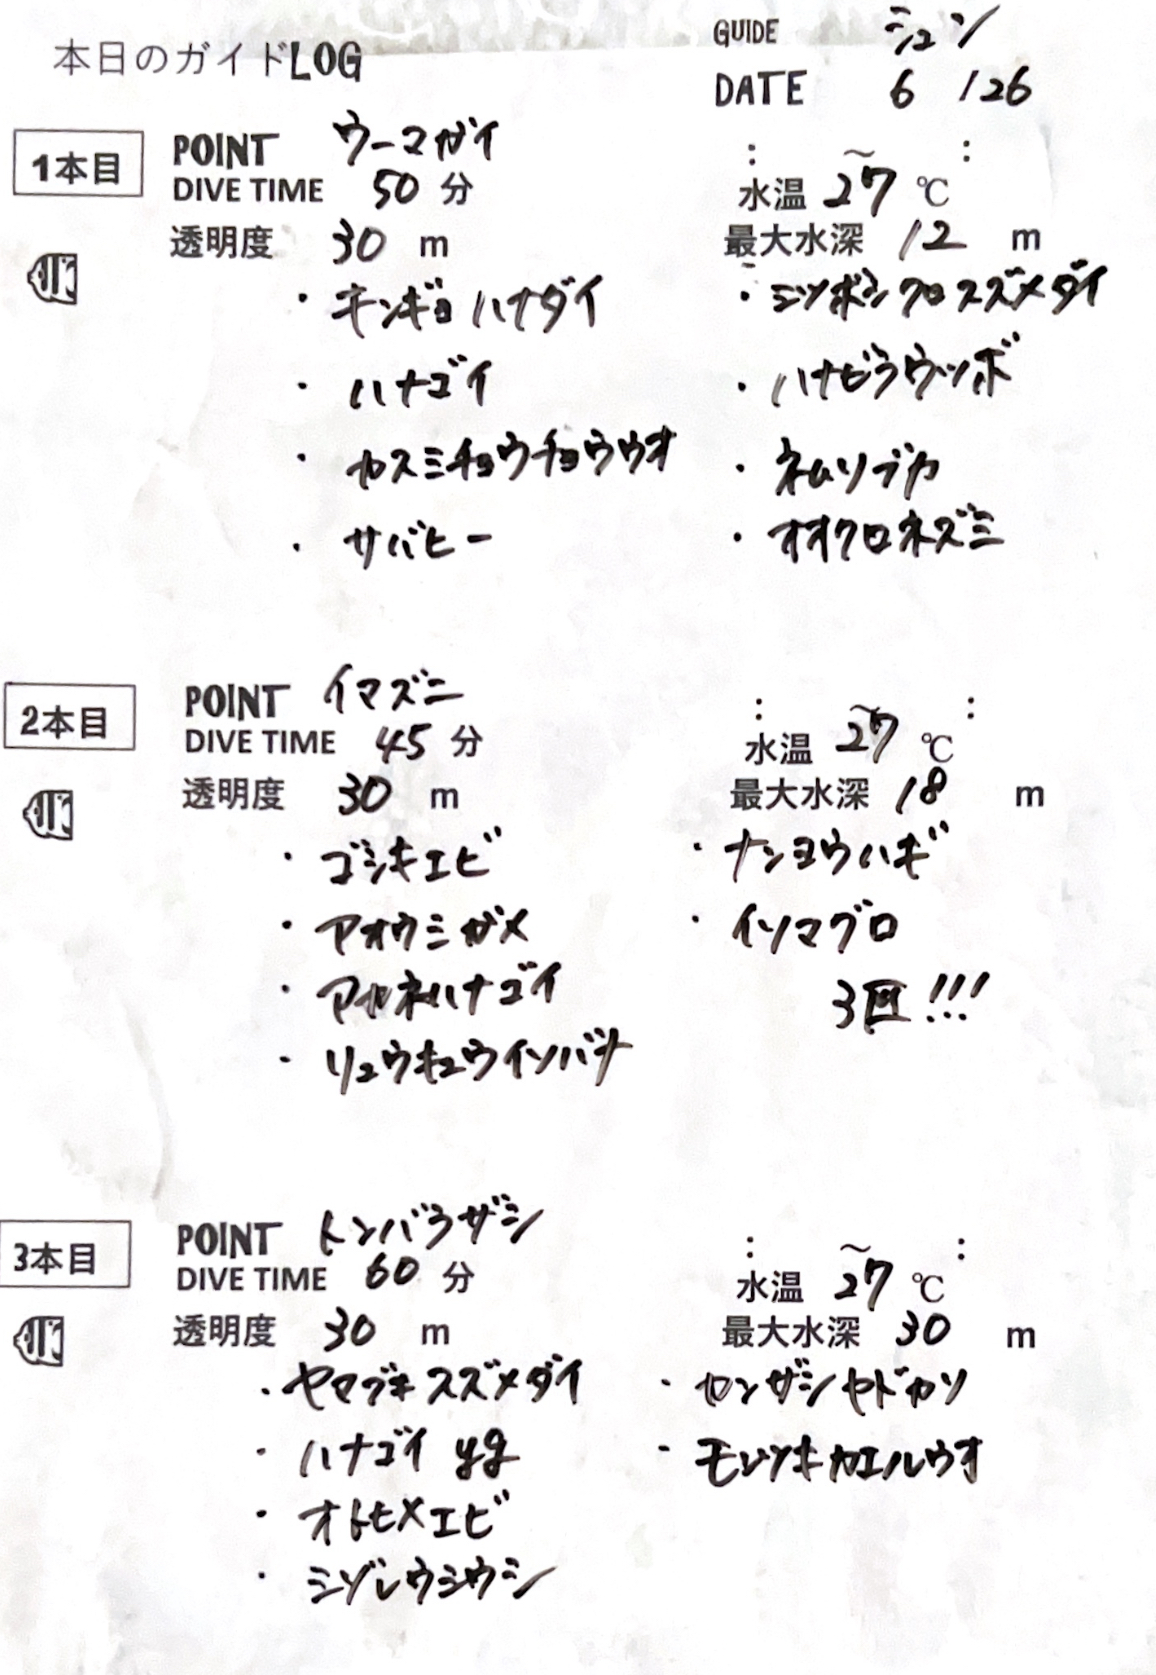 本日のガイドLOG
GUIDE ジュン
DATE 6 /26
1本目
POINT ウーマガイ : ～ :
DIVE TIME 50 分 水温 27 ℃
透明度 30 m 最大水深 12 m
・キンギョハナダイ
・ハナゴイ
・カスミチョウチョウウオ
・サバヒー
・ミツボシクロスズメダイ
・ハナビラウツボ
・ネムリブカ
・オオクロネズミ
2本目
POINT イマズニ : ～ :
DIVE TIME 45 分 水温 27 ℃
透明度 30 m 最大水深 18 m
・ゴシキエビ
・アオウミガメ
・アカネハナゴイ
・リュウキュウイソバナ
・ナンヨウハギ
・イソマグロ
3回!!!
3本目
POINT トンバラザシ : ～ :
DIVE TIME 60 分 水温 27 ℃
透明度 30 m 最大水深 30 m
・ヤマブキスズメダイ
・ハナゴイ yg
・オトヒメエビ
・ミゾレウミウシ
・カンザシヤドカリ
・モンツキカエルウオ